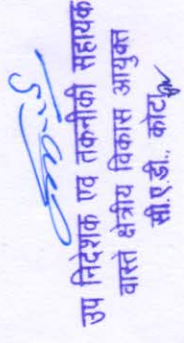 उप निदेशक एव तकनीकी सहायक
वास्ते क्षेत्रीय विकास आयुक्त
सी.ए.डी., कोटा